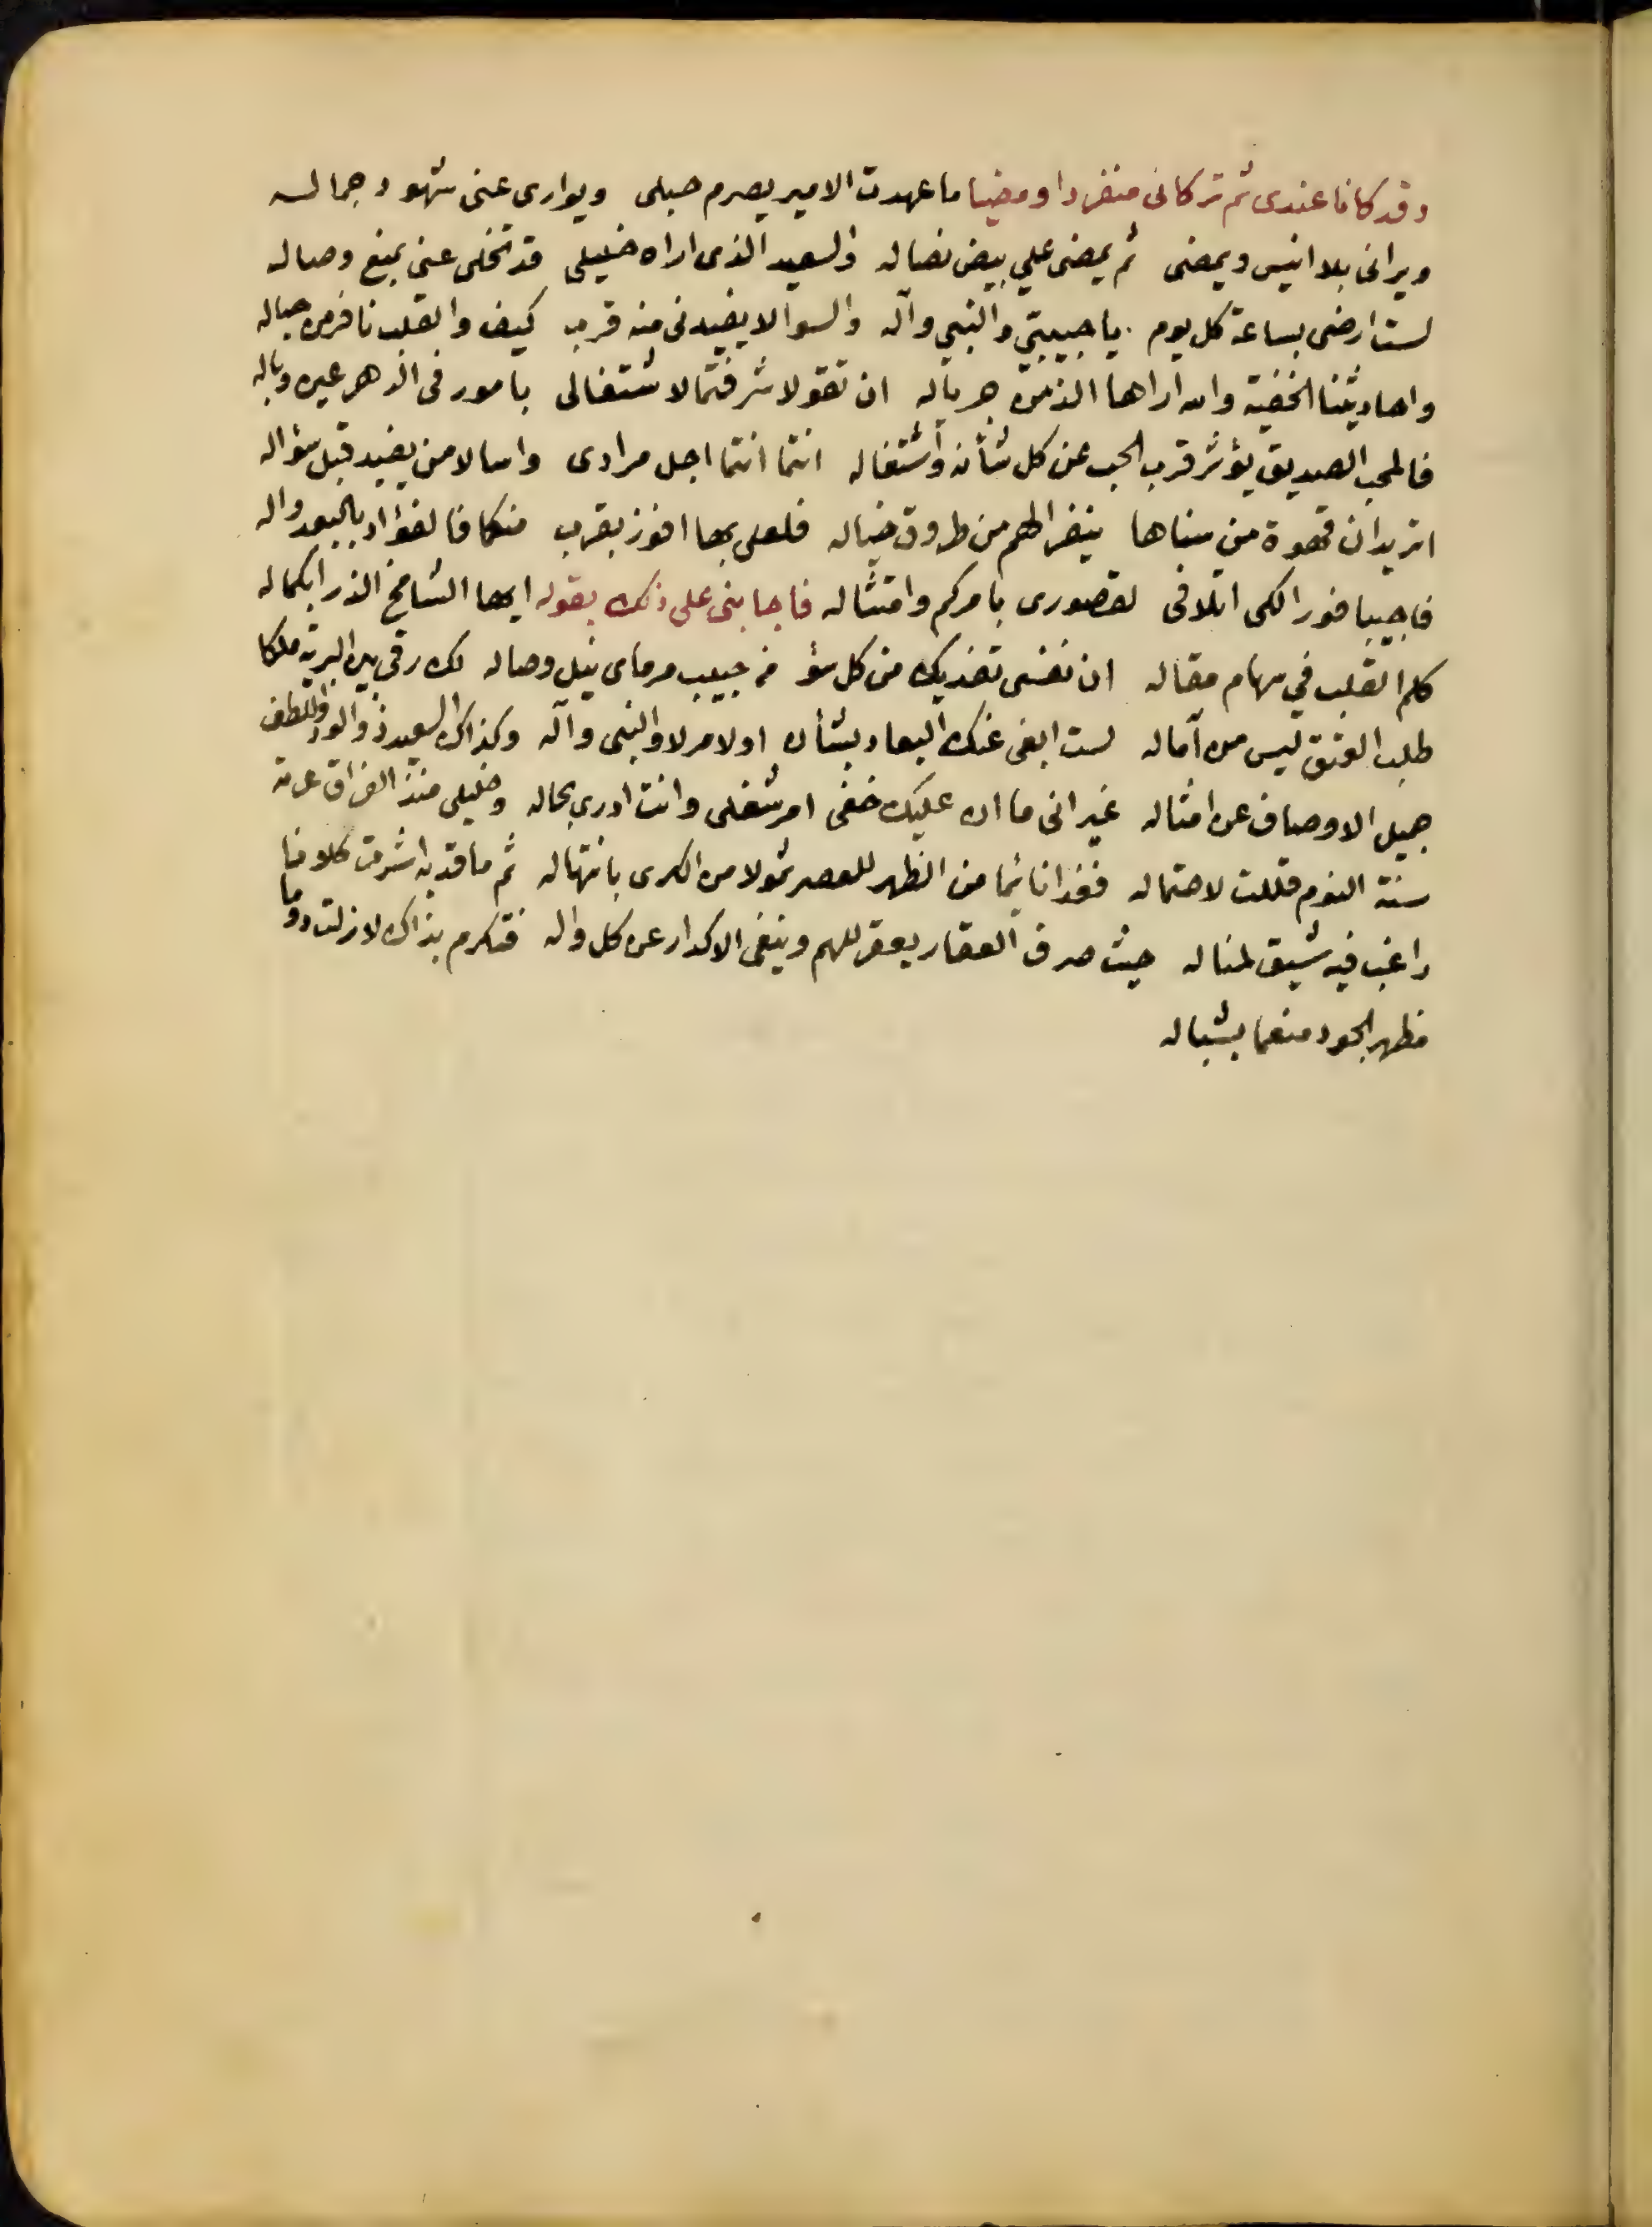 وقد كانا عندى ثم تركانى منفردا ومضيا ما عهدت الامير يصرم حبلى ويوارى عنى شهود جماله
ويرانى بلا انيس ويمضى ثم يمضى علي بيض نصاله والسعيد الذى اراه خليلى قد تخلى عنى بمنع وصاله
لست ارضى بساعة كل يوم يا حبيبيّ والنبي وآله والسوا لا يفيدنى منه قرب كيف والقلب نافر من حباله
واحاديثنا الخفية والله اراها الذ من جرياله ان تقولا شرفتما لاشتغالى بامور فى الدهر عين وباله
فالمحب الصديق يؤثر قرب الحب عن كل شأنه واشتغاله انتما انتما اجل مرادى واسالا من يفيد قبل سؤاله
اتريدان قهوة من سناها ينفر الهم من طروق خياله فلعلى بها افوز بقرب منكما فالفؤاد بالبعد واله
فاجيبا فورا لكى اتلافى لقصورى بامركم وامتثاله فاجابنى على ذلك بقوله ايها الشامخ الذرا بكماله
كلم القلب في سهام مقاله ان نفسى تفديك من كل سؤ من حبيب مرماى نيل وصاله لك رقى بين البرية ملكا
طلب العتق ليس من آماله لست ابغى عنك البعاد بشأن او لامر لا والنبى وآله وكذاك السعيد ذو الود واللطف
جميل الاوصاف عن امثاله غير انى ما ان عليك خفى امر شغلى وانت ادرى بحاله وخليلى منذ الفراق عرته
سنة النوم قللت لاحتماله فغدا نائما من الظهر للعصر ثمولا من الكرى بانتهاله ثم ما قد به اشرت كلانا
راغب فيه شيق لمناله حيث صرف العقار يعقر للهم وينفى الاكدار عن كل واله فتكرم بذاك لا زلت دوما
مظهر الجود منعما بشباله